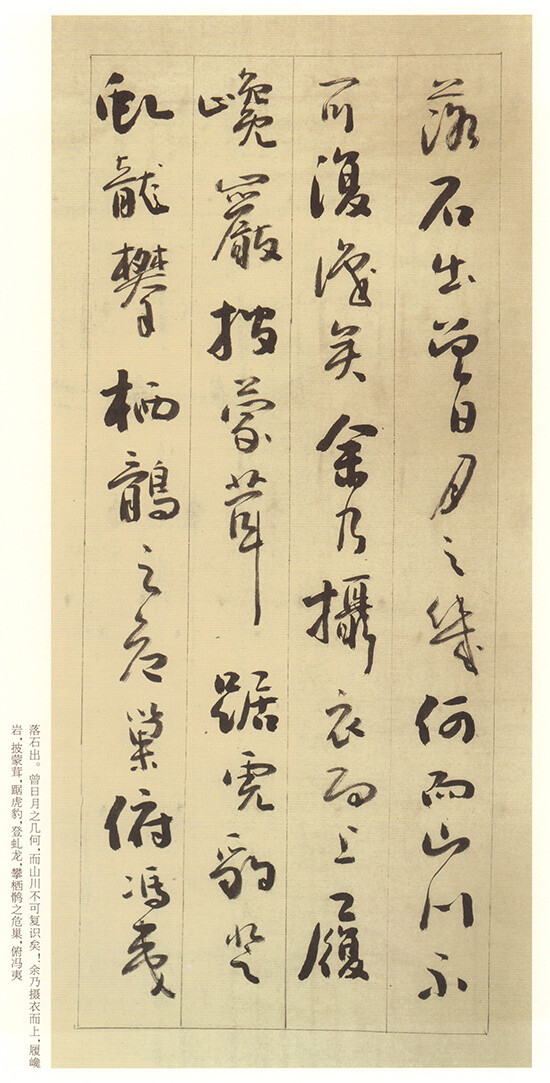 落石出曾日月之幾何而山川不
可復識矣余乃攝衣而上履
巉巖披蒙茸踞虎豹登
虬龍攀栖鶻之危巢俯馮夷
落石出。曾日月之几何,而山川不可复识矣!余乃摄衣而上,履巉
岩,披蒙茸,踞虎豹,登虬龙,攀栖鹘之危巢,俯冯夷